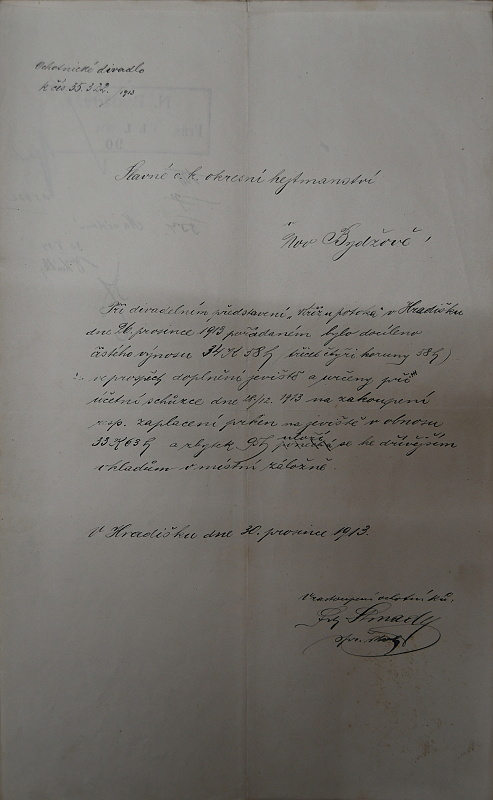 Ochotnické divadlo
k čís. 35.322. 1913
Slavné c. k. okresní hejtmanství
v
Nov Bydžově,
Při divadelním představení „Kříž u potoka" v Hradišku
dne 26. prosince 1913 pořádaném bylo docíleno
čistého výnosu 34 K 58 h (třicet čtyři koruny 58 h)
ve prospěch doplnění jeviště a určeny při
účetní schůzce dne 28/12. 1913 na zakoupení
resp. zaplacení prken na jeviště v obnosu
33 K 63 h a zbytek 95 h uloží se ke dřívějším
vkladům v místní záložně.
V Hradišku dne 30. prosince 1913.
V zastoupení ochotníků.